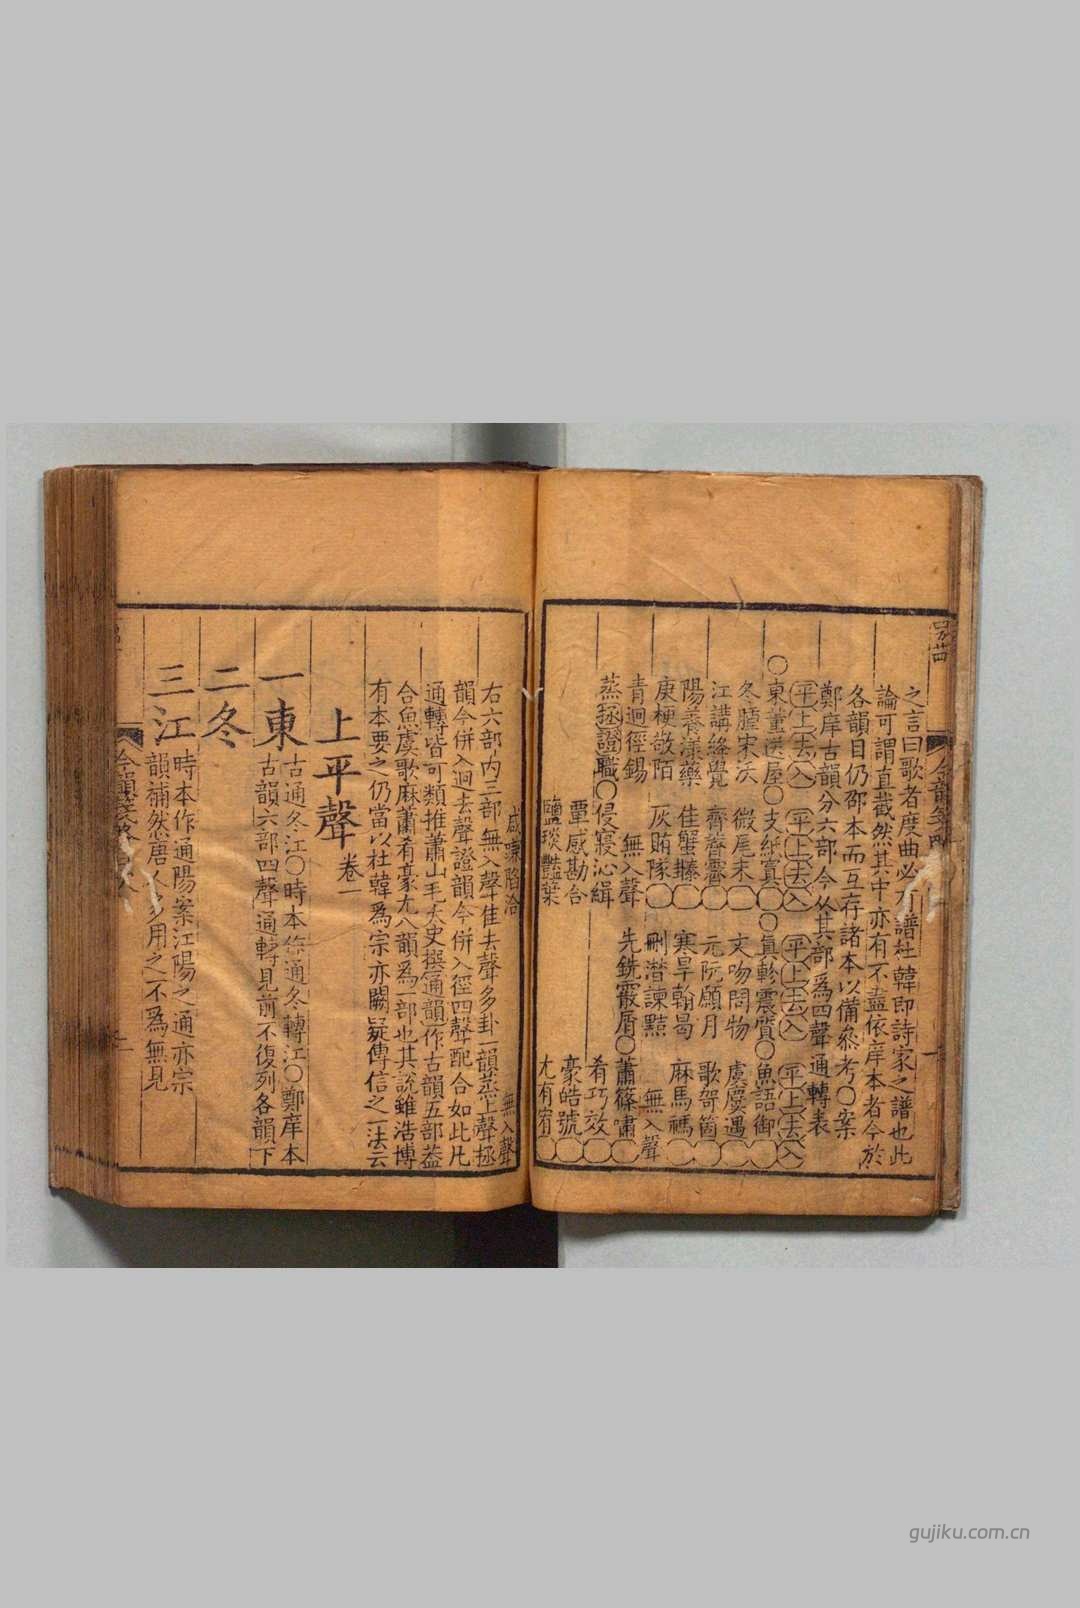 之言曰歌者度曲必有譜杜韓即詩家之譜也此
論可謂直截然其中亦有不盡依庠本者今於
各韻目仍邵本而互存諸本以備叅考〇案
鄭庠古韻分六部今从其部爲四聲通轉表
平上去入 平上去入 平上去入 平上去入
〇東董送屋〇支紙寘〇〇眞軫震質〇魚語御〇
冬腫宋沃 微尾未〇 文吻問物 虞麌遇〇
江講絳覺 齊薺霽〇 元阮願月 歌哿箇〇
陽養漾藥 佳蟹〇 寒旱翰曷 麻馬禡〇
庚梗敬陌 灰賄隊〇 刪潸諫黠 無入聲
青迥徑錫 無入聲 先銑霰屑〇蕭篠嘯〇
蒸拯證職〇侵寢沁緝 肴巧效〇
覃感勘合 豪皓號〇
鹽琰豔葉 尤有宥〇
咸豏陷洽 無入聲
右六部内三部無入聲佳去聲多卦一韻蒸上聲拯
韻今併入迥去聲證韻今併入徑四聲配合如此凡
通轉皆可類推蕭山毛太史撰通韻作古韻五部葢
合魚虞歌麻蕭肴豪尤八韻爲一部也其說雖浩博
有本要之仍當以杜韓爲宗亦闕疑傳信之一法云
上平聲 卷一
一東 古通冬江〇時本作通冬轉江〇鄭庠本
古韻六部四聲通轉見前不復列各韻下
二冬
三江 時本作通陽案江陽之通亦宗
韻補然唐人多用之不爲無見
今韻箋略
gujiku.com.cn